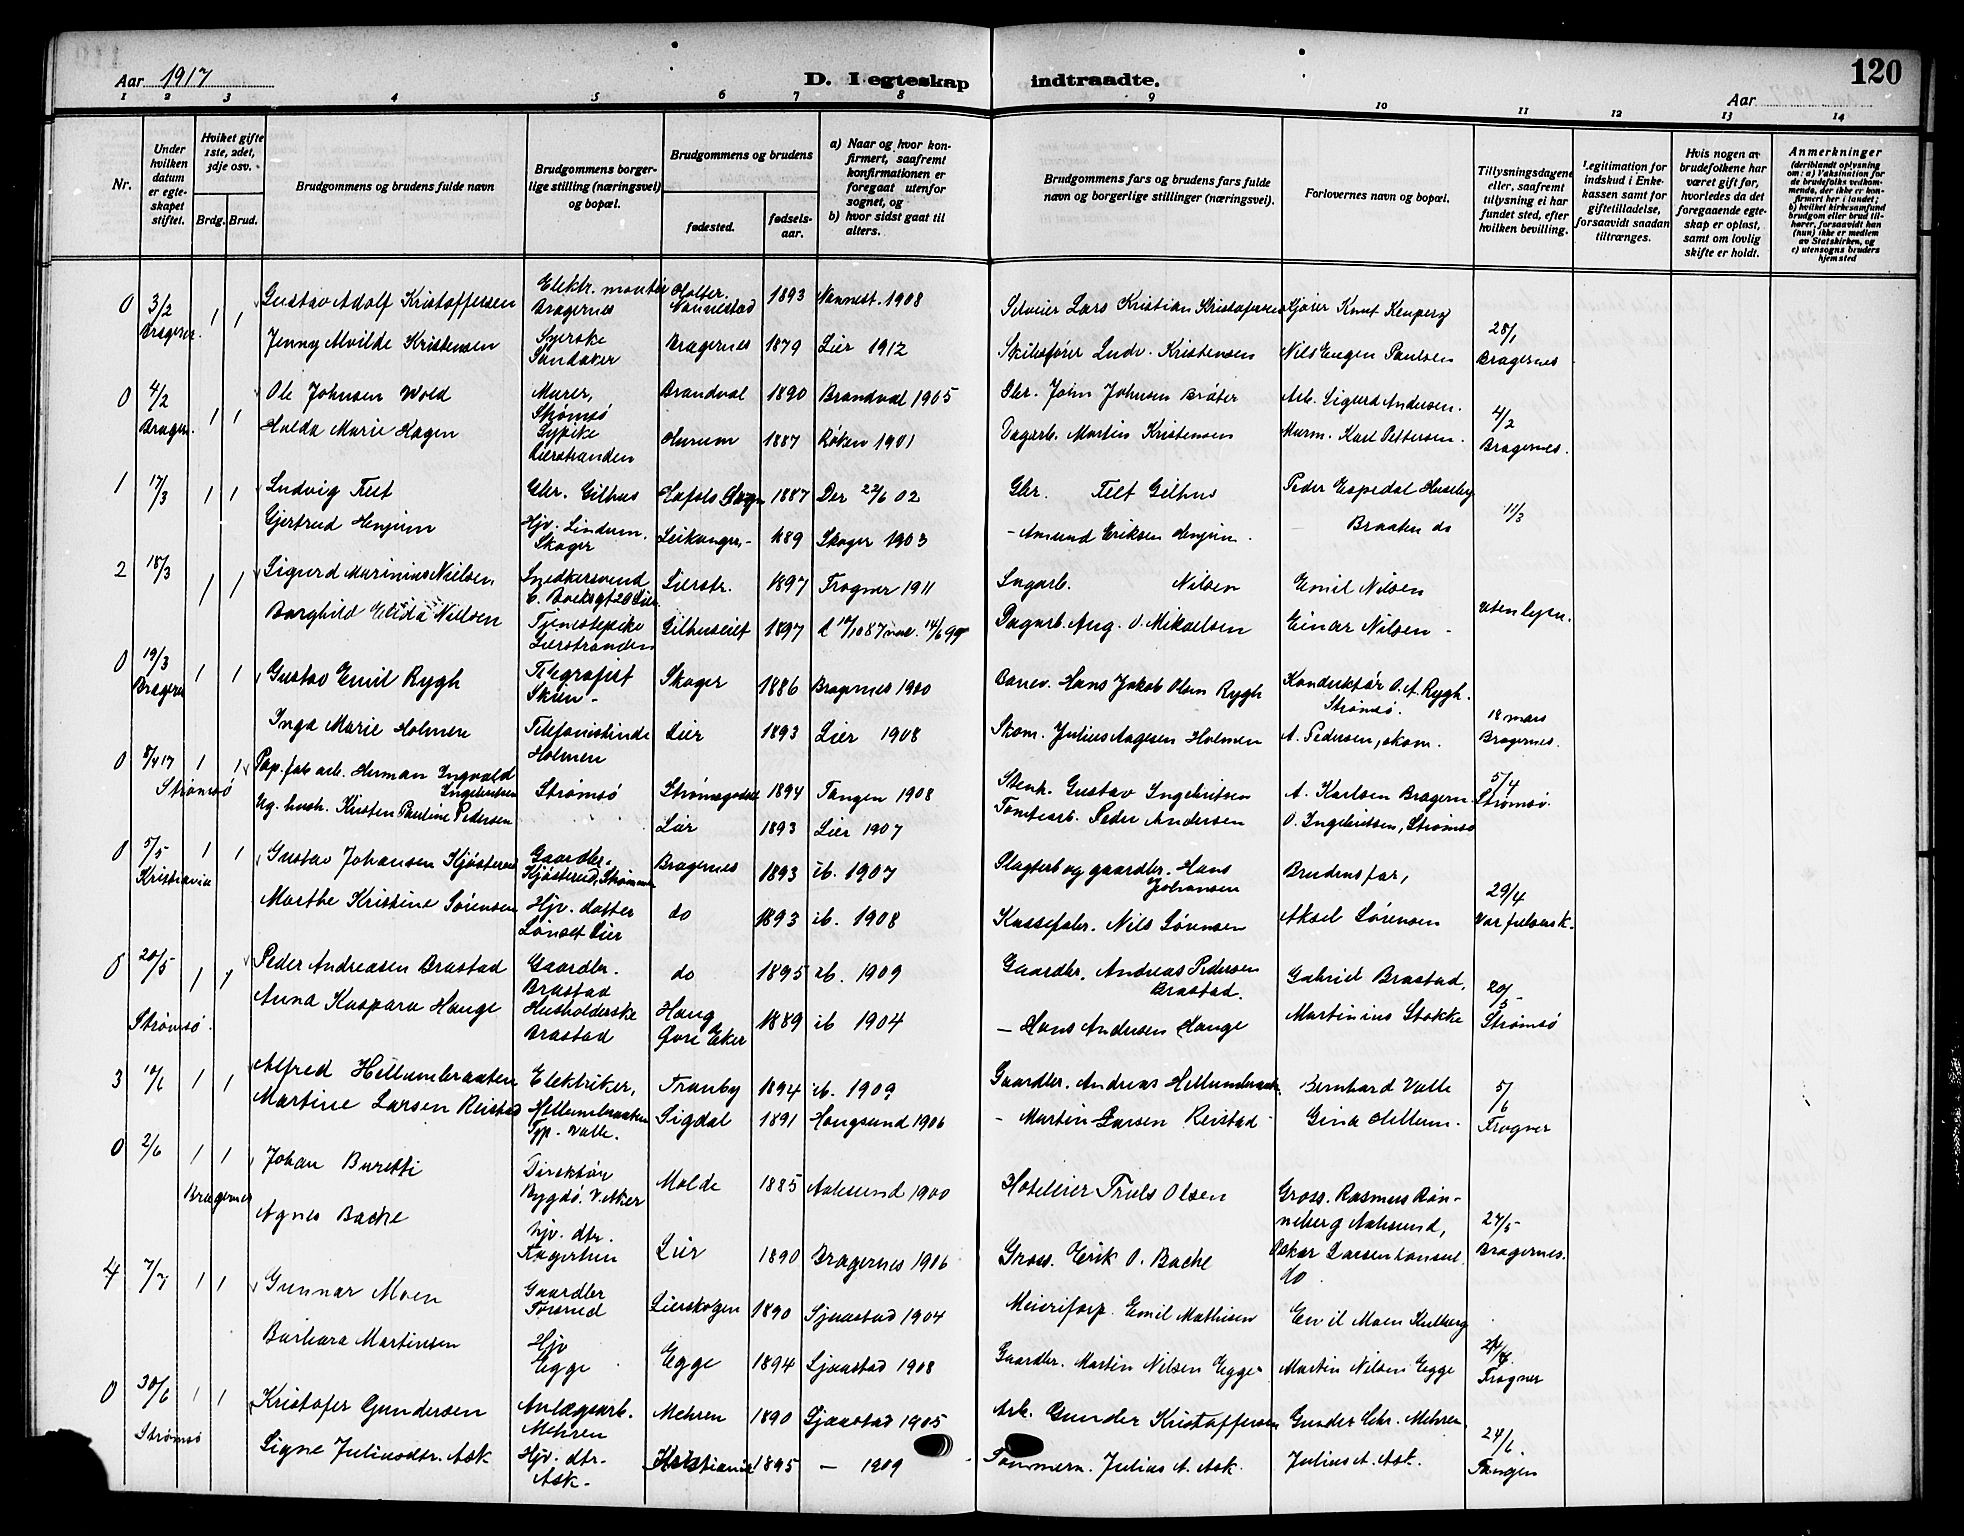 Aar 1917
D. I egteskap indtraadte.
120
Aar
1 2 3 4 5 6 7 8 9 10 11 12 13 14
Nr.
Under hvilken datum er egteskapet stiftet.
Hvilket gifte 1ste, 2det, 3dje osv.
Brdg. Brud.
Brudgommens og brudens fulde navn
Brudgommens borgerlige stilling (næringsvei) og bopæl.
Brudgommens og brudens
fødested.
fødselsaar.
a) Naar og hvor konfirmert, saafremt konfirmationen er foregaat utenfor sognet, og
b) hvor sidst gaat til alters.
Brudgommens fars og brudens fars fulde navn og borgerlige stillinger (næringsvei).
Forlovernes navn og bopæl.
Tillysningsdagene eller, saafremt tillysning ei har fundet sted, efter hvilken bevilling.
Legitimation for indskud i Enkekassen samt for giftetilladelse, forsaavidt saadan tiltrænges.
Hvis nogen av brudefolkene har været gift før, hvorledes da det foregaaende egteskap er opløst, samt om lovlig skifte er holdt.
Anmerkninger
(deriblandt oplysning om: a) Vaksination for de brudefolks vedkommende, der ikke er konfirmert her i landet; b) hvilket kirkesamfund brudgom eller brud tilhører, forsaavidt han (hun) ikke er medlem av Statskirken, og c) utensogns bruders hjemsted
0 3/2 Bragernes 1 1 Gustav Adolf Kristoffersen Elektr. montør Bragernes Holter. Nannestad 1893 Nannest. 1908 Lars Kristian Kristofersen Knut
Jenny Alvilde Kristensen Syerske Landaker Bragernes 1879 Lier 1912 Skibsfører Ludv. Kristensen Nils Eugen Paulsen 28/1 Bragernes
0 4/2 Bragern. 1 1 Ole Johnsen Wold Murer, Strømsø Brandval 1890 Brandval 1905 Gbr. John Johnsen Bråter Arb. Sigurd Andersen.
Hulda Marie Hagen Sypike Lierstranden Hurum 1887 Røken 1901 Dagarb. Martin Kristensen Murm. Karl Pettersen. 4/2 Bragernes.
1 17/3 1 1 Ludvig Tveit Gbr. Gilhus Hafslo Sogn 1887 Der 22/6 02 Gbr. Gilhus Peder Espedal Huseby
Gjertrud Henjum Hjv. Lindum, Skoger Leikanger 1889 Skoger 1903 - Amund Eriksen Henjum. Braaten do 11/3
2 18/3 1 1 Sigurd Marinius Nielsen Snedkersvend Lierstr. 1897 Frogner 1911 Nilsen Emil Nilsen
Borghild Elida Nielsen Tjenestepike Lierstranden Gilhuseiet 1897 Dagarb. Aug. O. Mikaelsen Einar Nilsen - Uten lysn.
0 19/3 Bragern 1 1 Gustav Emil Rygh Telegrafist Skien - Skoger 1886 Bragernes 1900 Banev. Hans Jakob Olsen Rygh Konduktør O. A. Rygh. Strømsø.
Inga Marie Holmen Telefonistinde Holmen Lier 1893 Lier 1908 Skom. Julius Aagesen Holmen A. Pedersen, skom. 18 mars Bragernes.
0 8/4 17 Strømsø 1 1 Pap. fab arb. Herman Ingvald Ingebritsen Strømsø Strømsgodset 1894 Tangen 1908 Stenh. Gustav Ingebritsen A. Karlsen Bragern. 5/4 Strømsø.
Ug. hush. Kirsten Pauline Pedersen Lier 1893 Lier 1907 Tomtearb. Peder Andersen O. Ingebritsen, Strømsø
0 5/5 Kristiania 1 1 Gustav Johansen Kjøsterud Gaardbr. Kjøsterud, Strømmen Bragernes 1893 ib. 1907 Slagter og gaardbr. Hans Johansen Brudens far,
Marthe Kristine Sørensen Hjv. datter Lier do 1893 ib. 1908 Kassefabr. Nils Sørensen Aksel Sørensen 29/4 Var frelsers k.
0 20/5 Strømsø. 1 1 Peder Andreasen Brastad Gaardbr. Brastad do 1895 ib. 1909 Gaardbr. Andreas Pedersen Brastad. Gabriel Brastad,
Anna Kaspara Hauge Husholderske Brastad Haug Øvre Eker 1889 ib 1904 - Hans Andersen Hauge Martinius Stokke 20/5 - Strømsø
3 1 1 Alfred Hellumbraaten Elektriker, Hellumbraaten Tranby 1894 ib. 1909 Gaardbr. Andreas Hellumbraaten Bernhard Valle
Martine Larsen Reistad Tjp. Valle. Sigdal 1891 Haugsund 1906 - Martin Larsen Reistad - Gina Hellum. 5/6 Frogner
0 2/6 Bragernes 1 1 Johan Buretti Direktør Bygdø. V. Aker Molde 1885 Aalesund 1900 Hotelleier Truls Olsen Gross. Rasmus Rønneberg Aalesund,
Agnes Bache hjv. dtr. Fagertun Lier 1890 Bragernes 1906 Gross. Erik O. Bache Oskar Larsen konsul. do. 27/5 - Bragernes.
4 7/7 1 1 Gunnar Moen Gaardbr Lierskogen 1890 Sjaastad 1904 Meieriforp. Emil Mathisen Emil Moen
Barbara Martinsen Hjv Egge Egge 1894 Sjaastad 1908 Gaardbr. Martin Nilsen Egge Martin Nilsen Egge Frogner
0 30/6 Strømsø 1 1 Kristofer Gundersen Anlægsarb. Mehren Mehren 1890 Sjaastad 1905 Arb. Gunder Kristoffersen Gunder Chr. Mehren
Signe Juliusdtr. Ask Hjv. dtr. Ask - Kristiania 1895 - 1909 Tømmerm. Julius A. Ask. Julius A. Ask. 24/6. Tangen